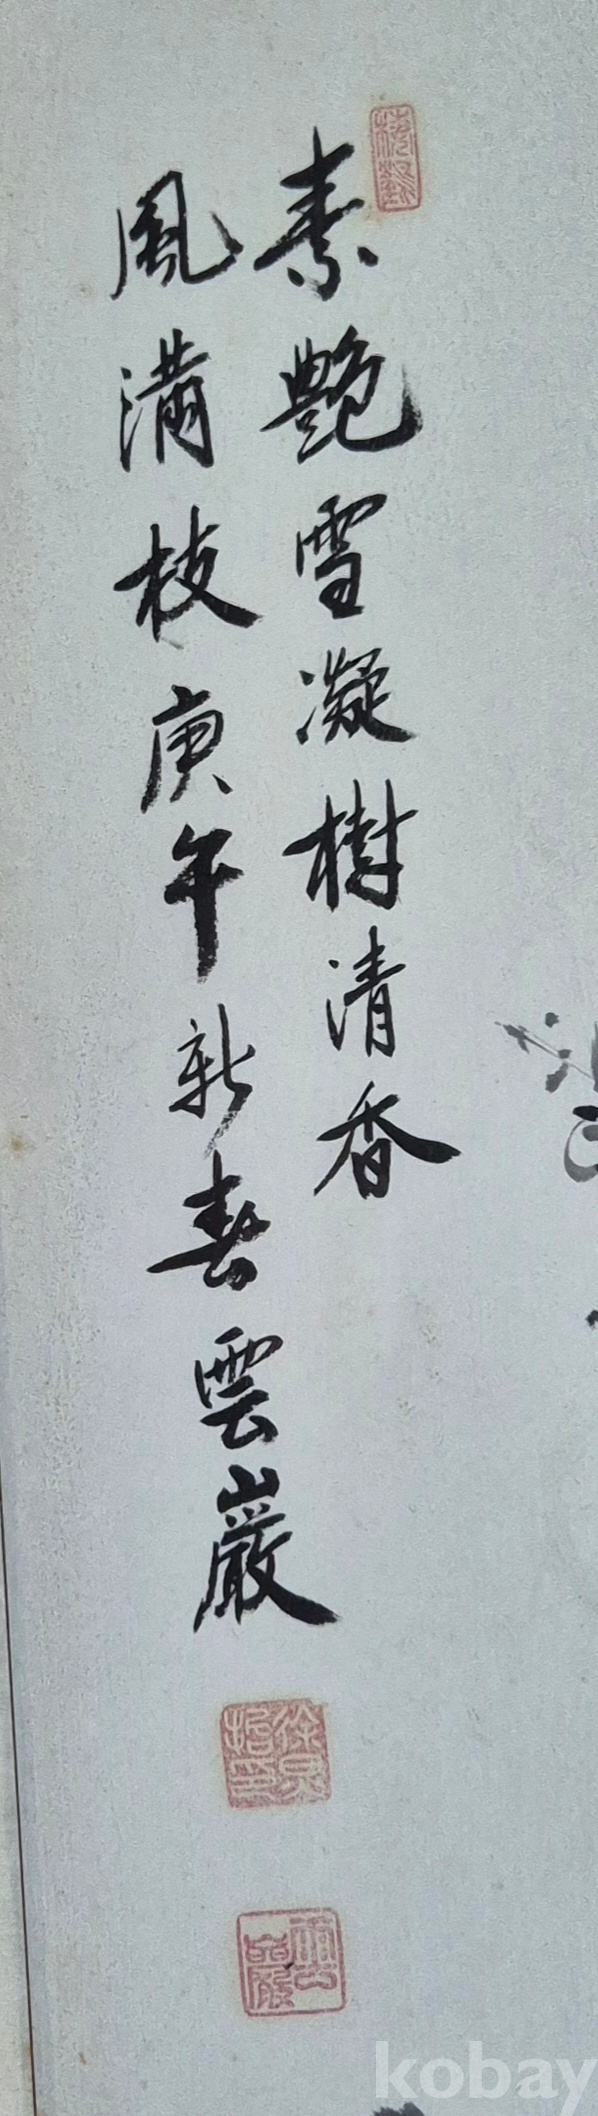 素艶雪凝樹清香
風滿枝庚午新春雲巖
雲巖
kobay